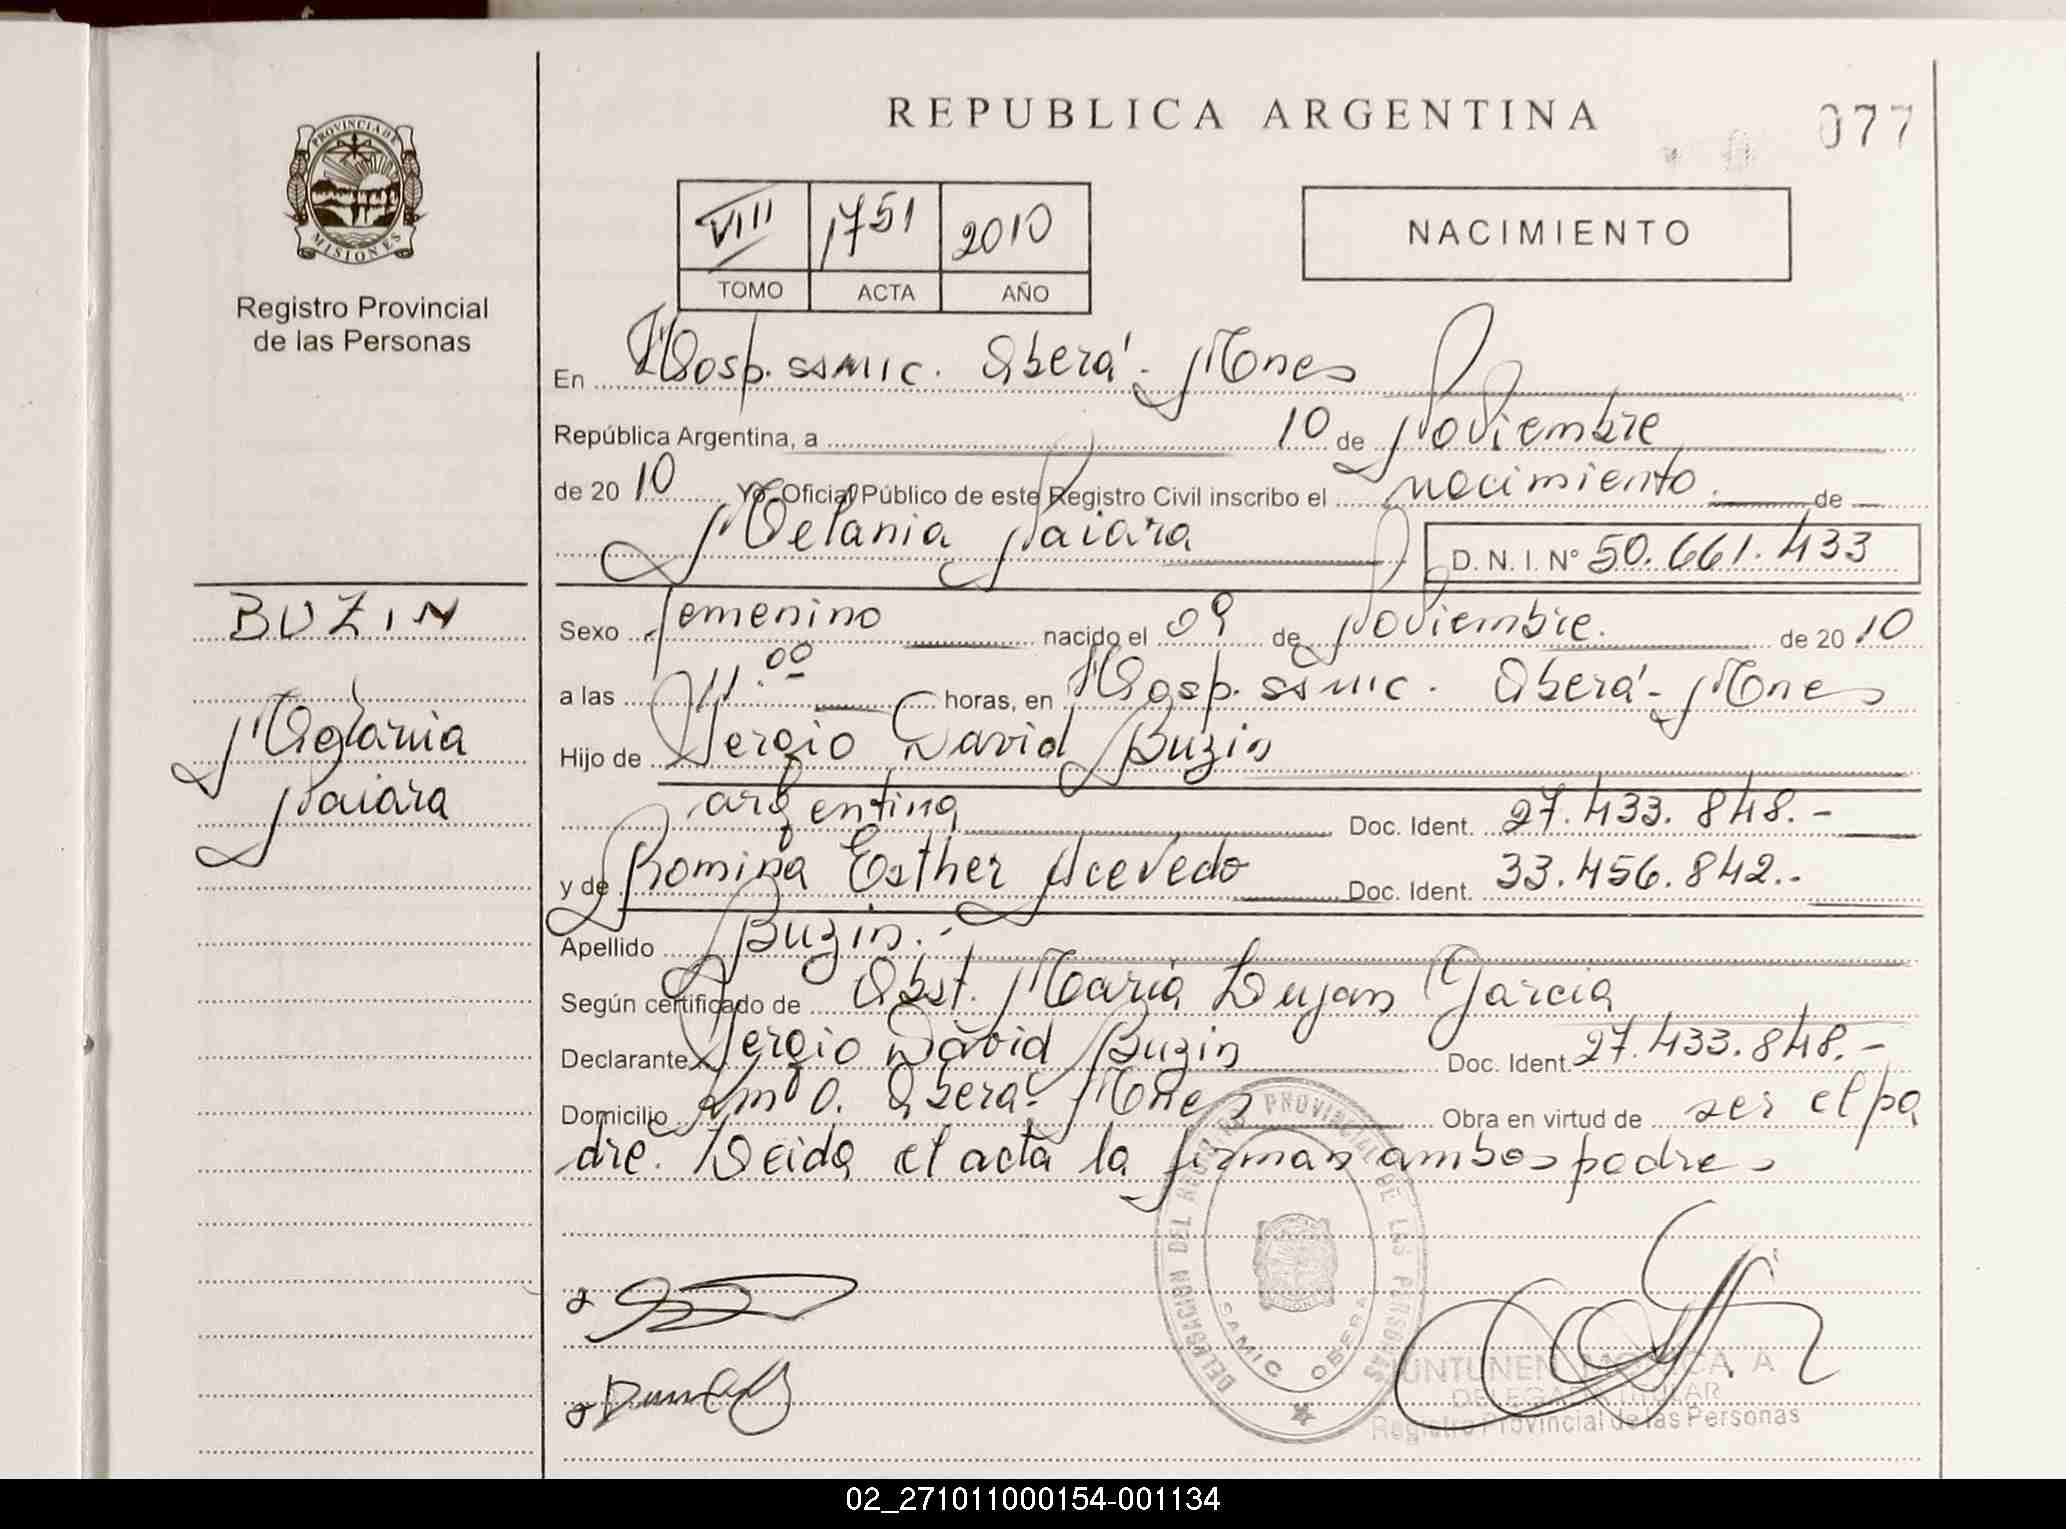 REPUBLICA ARGENTINA
077
PROVINCIA DE
MISIONES
Registro Provincial
de las Personas
VIII 1751 2010
TOMO ACTA AÑO
NACIMIENTO
En Hosp. SAMIC. Oberá - Mnes
República Argentina, a 10 de Noviembre
de 2010 Yo, Oficial Público de este Registro Civil inscribo el nacimiento de
Melania Naiara D. N. I. Nº 50.661.433
BUZIN
Melania
Naiara
Sexo femenino nacido el 09 de Noviembre. de 2010
a las 11.00 horas, en Hosp. SAMIC. Oberá - Mnes
Hijo de Sergio David Buzin
argentina Doc. Ident. 27.433.848.-
y de Romina Esther Acevedo Doc. Ident. 33.456.842.-
Apellido Buzin.-
Según certificado de Obst. Maria Lujan Garcia
Declarante Sergio David Buzin Doc. Ident. 27.433.848.-
Domicilio Oberá - Mnes Obra en virtud de ser el pa
dre. Leida el acta la firman ambos padres
DELEGACION DEL REGISTRO PROVINCIAL DE LAS PERSONAS
SAMIC OBERA
MONICA A
DELEGADA TITULAR
Registro Provincial de las Personas
02_271011000154-001134